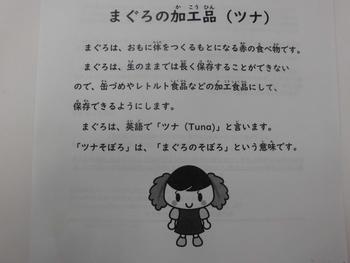 まぐろの加工品（ツナ）
まぐろは、おもに体をつくるもとになる赤の食べ物です。
まぐろは、生のままでは長く保存することができない
ので、缶づめやレトルト食品などの加工食品にして、
保存できるようにします。
まぐろは、英語で「ツナ（Tuna）」と言います。
「ツナそぼろ」は、「まぐろのそぼろ」という意味です。